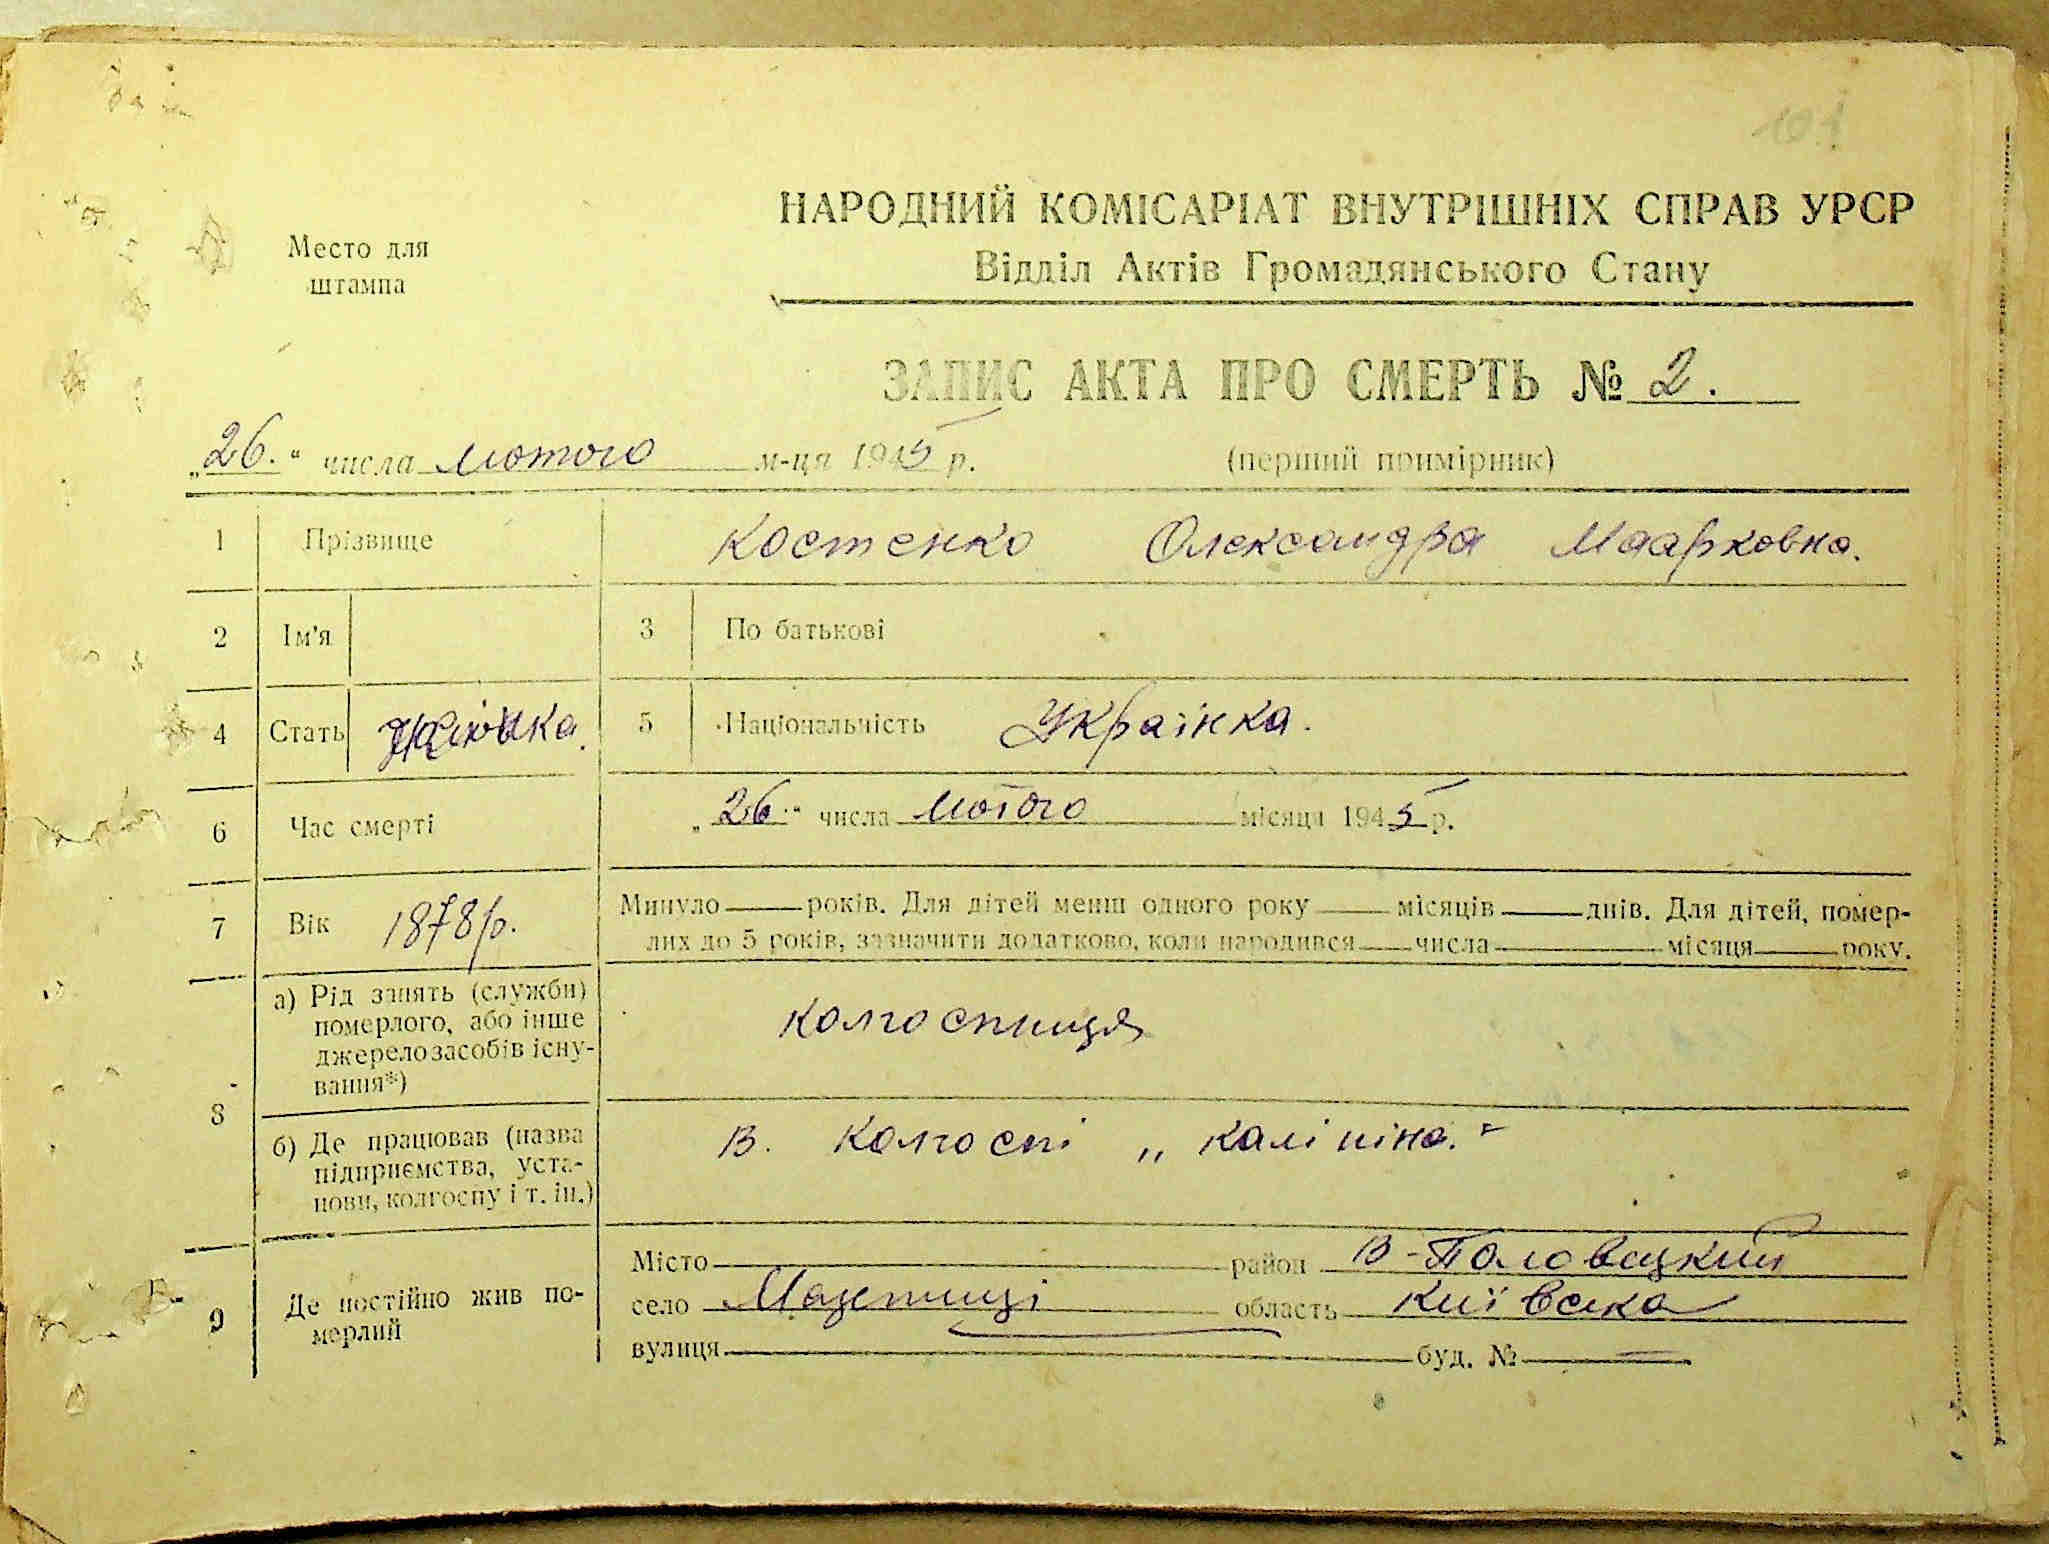 101
НАРОДНИЙ КОМІСАРІАТ ВНУТРІШНІХ СПРАВ УРСР
Место для штампа
Відділ Актів Громадянського Стану
ЗАПИС АКТА ПРО СМЕРТЬ № 2.
„26.“ числа лютого м-ця 1945 р. (перший примірник)
1 Прізвище Костенко Олександра Маарковна.
2 Ім'я 3 По батькові
4 Стать Жінка. 5 Національність Українка.
6 Час смерті „26.“ числа лютого місяця 1945 р.
7 Вік 1878 р. Минуло років. Для дітей менш одного року місяців днів. Для дітей, помер-
лих до 5 років, зазначити додатково, коли народився числа місяця року.
8 а) Рід занять (служби)
померлого, або інше
джерело засобів існу-
вання*)
колгоспниця
б) Де працював (назва
підприємства, уста-
нови, колгоспу і т. ін.)
В. Колгоспі „Калініна."
9 Де постійно жив по-
мерлий
Місто район В-Половецкий
село область Київська
вулиця буд. № —